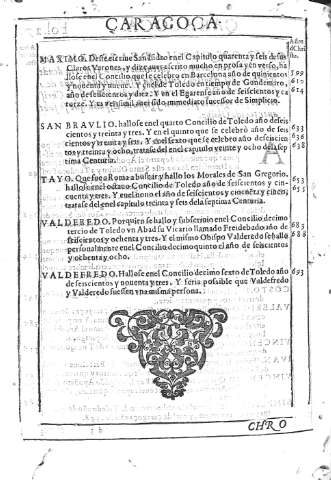 ÇARAGOÇA.
MAXIMO. Deste escriue San Isidro en el Capitulo quarenta y seis de sus
Claros Varones, y dize auer escrito mucho en prosa y en verso, ha
llose en el Concilio que se celebro en Barcelona año de quinientos
y nouenta y nueue. Y en el de Toledo en tiempo de Gundemiro,
año de seiscientos y diez. Y en el Egarense año de seiscientos y ca
torze. Y assi auer sido immediato sucessor de Simplicio.
599
610
614
SAN BRAVLIO, hallose en el quarto Concilio de Toledo año de seis
cientos y treinta y tres. Y en el quinto que se celebrò año de seis
cientos y treinta y seis. Y en el sexto que se celebro año de seiscien
tos y treinta y ocho, tratase del en el capitulo veinte y ocho de la sep
tima Centuria.
633
636
638
TAYO. Que fue a Roma a buscar y hallo los Morales de San Gregorio.
hallose en el octauo Concilio de Toledo año de seiscientos y cin-
cuenta y tres. Y en el nono el año de seiscientos y cincuenta y cinco,
tratase del en el capitulo treinta y seis de la septima Centuria.
653
655
VALDEREDO. Por quien se hallo y subscriuio en el Concilio decimo
tercio de Toledo vn Abad su Vicario llamado Freidebado año de
seiscientos y ochenta y tres. Y el mismo Obispo Valderedo se hallo
personalmente en el Concilio decimo quinto el año de seiscientos
y ochenta y ocho.
683
688
VALDEFREDO. Hallose en el Concilio decimo sexto de Toledo año
de seiscientos y nouenta y tres. Y seria possible que Valdefredo
y Valderedo fuessen vna misma persona.
693
CHRO